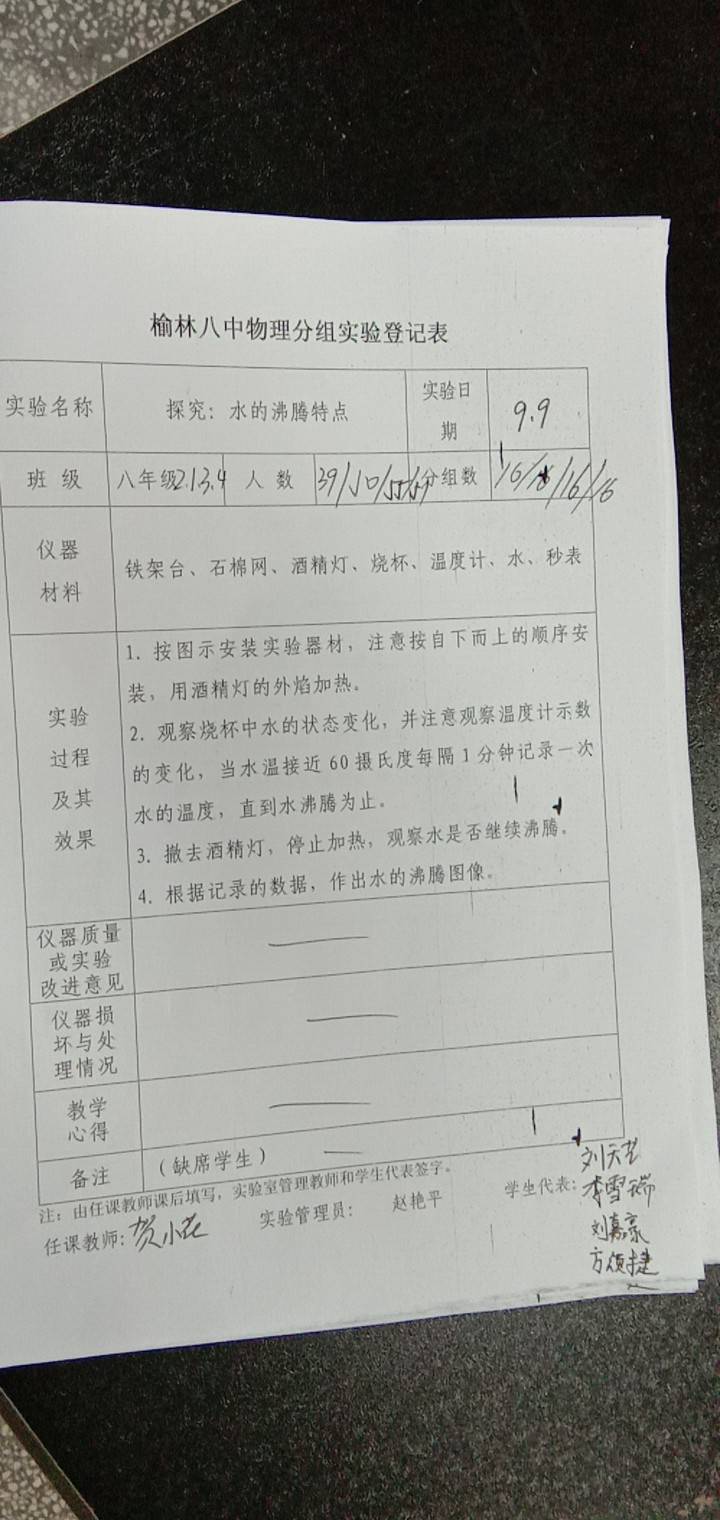 榆林八中物理分组实验登记表
实验名称 探究：水的沸腾特点 实验日期 9.9
班 级 八年级2.1.3.4 人 数 39/50/55/59 分组数 16/16/16/16
仪器材料 铁架台、石棉网、酒精灯、烧杯、温度计、水、秒表
实验过程及其效果
1. 按图示安装实验器材，注意按自下而上的顺序安
装，用酒精灯的外焰加热。
2. 观察烧杯中水的状态变化，并注意观察温度计示数
的变化，当水温接近 60 摄氏度每隔 1 分钟记录一次
水的温度，直到水沸腾为止。
3. 撤去酒精灯，停止加热，观察水是否继续沸腾。
4. 根据记录的数据，作出水的沸腾图像。
仪器质量或实验改进意见 ——
仪器损坏与处理情况 ——
教学心得 ——
备注 （缺席学生） —
注：由任课教师课后填写，实验室管理教师和学生代表签字。
任课教师：贺小花 实验管理员： 赵艳平 学生代表：
刘天艺
李雪瑞
刘嘉豪
方倾捷